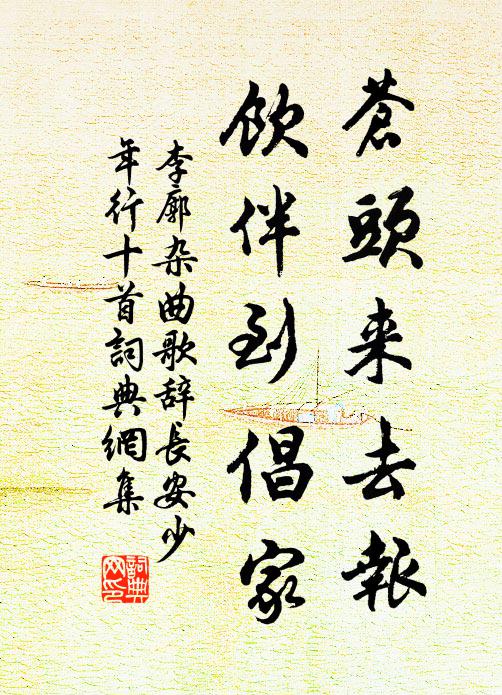 蒼頭来去報
飲伴到倡家
李廓杂曲歌辞長安少
年行十首詞典網集
詞典
网印